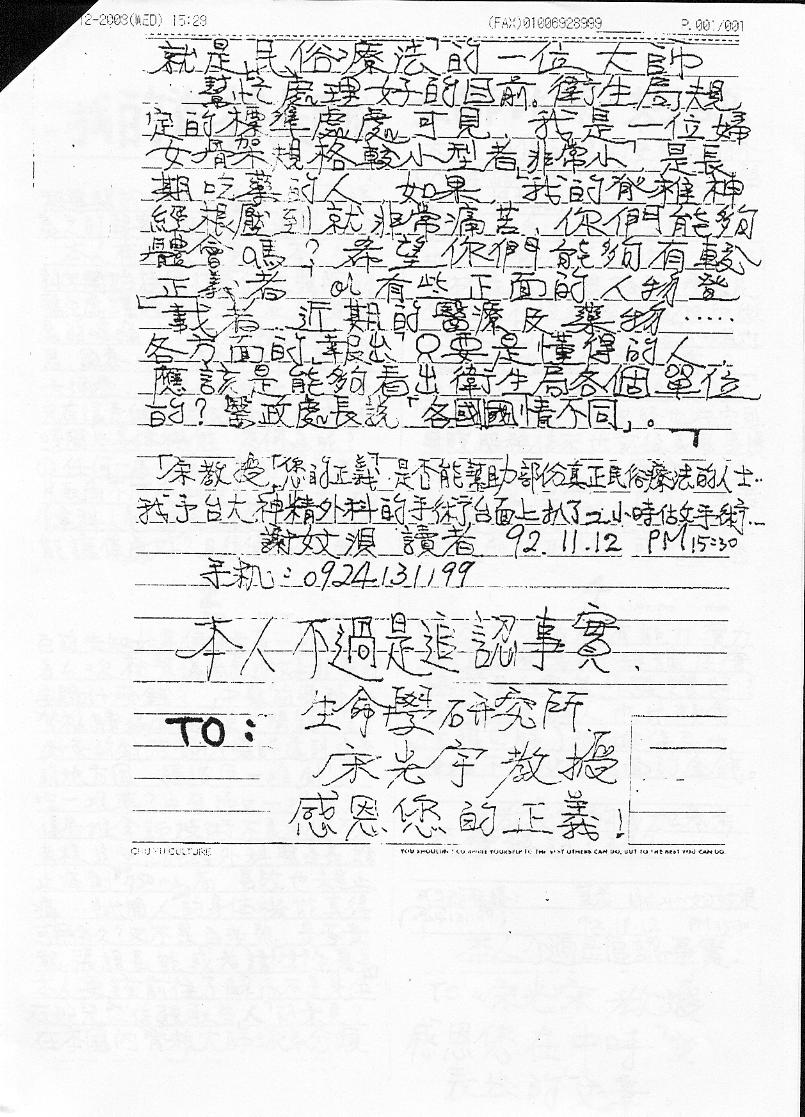 12-2003(WED) 15:23 (FAX)01006928999 P.001/001
就是民俗療法的一位大師
幫此處理好的目前。衛生局規
定的標準處處可見 我是一位婦
女 骨架規格較小型者「非常小」是長
期吃藥的人 如果「我的脊椎神
經根壓到就非常痛苦、你們能夠
體會嗎?希望你們能夠有較
正義者 or 有些正面的人物登
」載者 近期的醫療及藥物·····
各方面的「報出」只要是懂得的人
應該是能夠看出衛生局各個單位
的?醫政處長說「各國國情不同」。
「宋教授」「您的正義」是否能幫助部份真正民俗療法的人士..
我予台大神精外科的手術台面上趴了2小時 手術...
謝 讀者 92.11.12 PM 15:30
手机:0924131199
本人不過是追認事實.
生命學研究所.
TO: 宋光宇教授
感恩您的正義!
CULTURE YOU SHOULDN'T COMPARE YOURSELF TO THE BEST OTHERS CAN DO, BUT TO THE BEST YOU CAN DO.